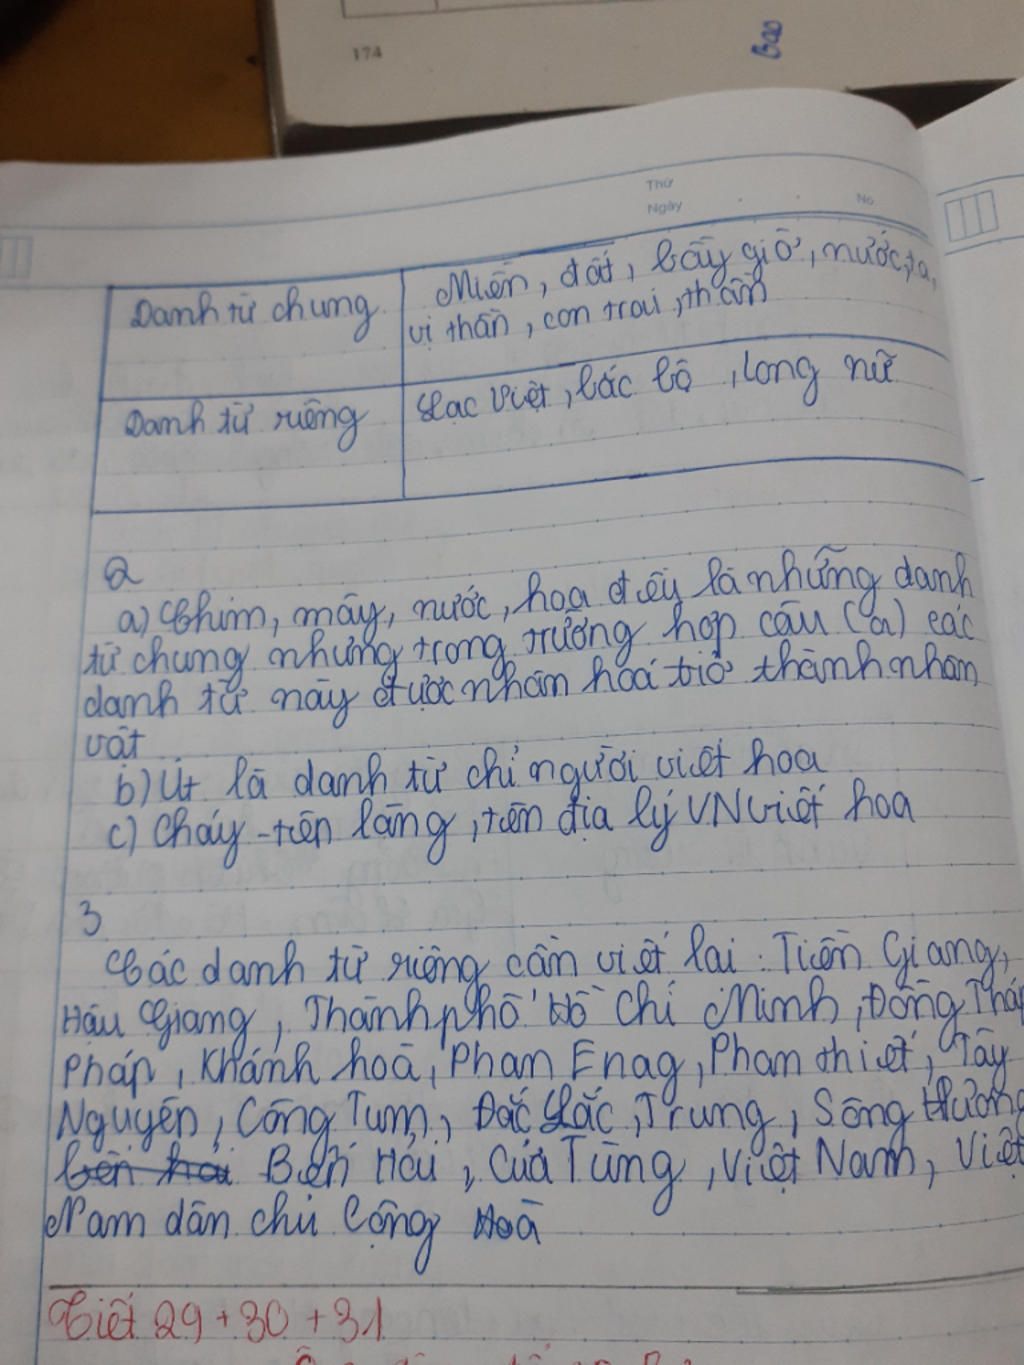 174
Bao
Thứ
Ngày
No.
Danh từ chung
Miền, đất, bây giờ, nước, ta,
vị thần, con trai, thần
Danh từ riêng
Lạc Việt, bắc bộ, long nữ
2
a) Chim, mây, nước, hoa đều là những danh
từ chung nhưng trong trường hợp câu (a) các
danh từ này được nhân hoá trở thành nhân
vật
b) Út là danh từ chỉ người viết hoa
c) Cháy - tên làng, tên địa lý VN viết hoa
3
Các danh từ riêng cần viết lại: Tiền Giang,
Hậu Giang, Thành phố Hồ Chí Minh, Đồng Tháp
Pháp, Khánh hoà, Phan Enag, Phan thiết, Tây
Nguyên, Công Tum, Đắc Lắc, Trung, Sông Hương
Bến Hải, Cửa Tùng, Việt Nam, Việt
Nam dân chủ Cộng Hoà
Tiết 29+30+31